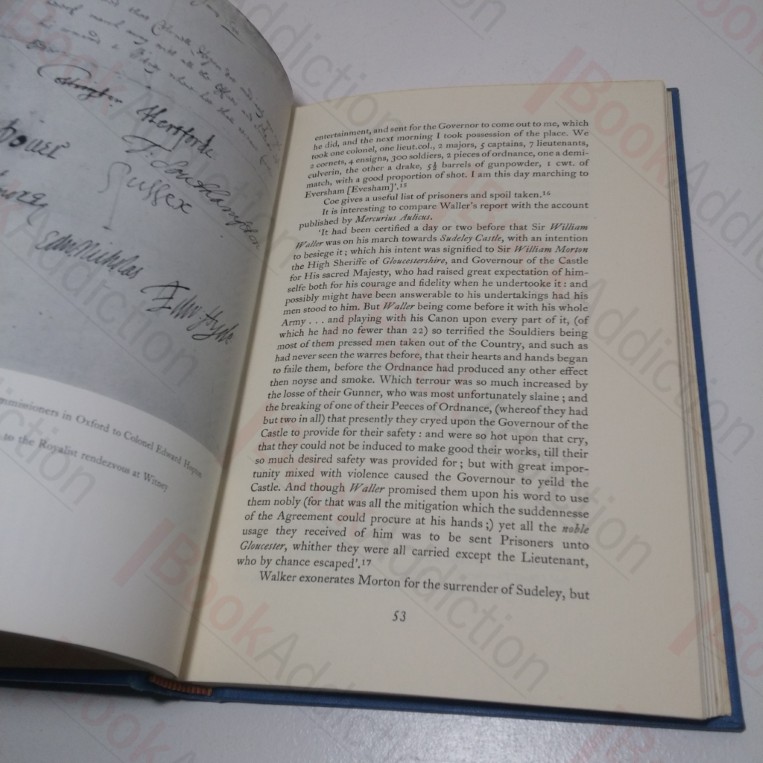 Hertford
Sussex
Southampton
Edw. Nicholas
Edw Hyde
ommissioners in Oxford to Colonel Edward
to the Royalist rendezvous at Witney
entertainment, and sent for the Governor to come out to me, which
he did, and the next morning I took possession of the place. We
took one colonel, one lieut.col., 2 majors, 5 captains, 7 lieutenants,
2 cornets, 4 ensigns, 300 soldiers, 2 pieces of ordnance, one a demi-
culverin, the other a drake, 5½ barrels of gunpowder, 1 cwt. of
match, with a good proportion of shot. I am this day marching to
Eversham [Evesham]'.15
Coe gives a useful list of prisoners and spoil taken.16
It is interesting to compare Waller's report with the account
published by Mercurius Aulicus.
'It had been certified a day or two before that Sir William
Waller was on his march towards Sudeley Castle, with an intention
to besiege it; which his intent was signified to Sir William Morton
the High Sheriffe of Gloucestershire, and Governour of the Castle
for His sacred Majesty, who had raised great expectation of him-
selfe both for his courage and fidelity when he undertooke it: and
possibly might have been answerable to his undertakings had his
men stood to him. But Waller being come before it with his whole
Army . . . and playing with his Canon upon every part of it, (of
which he had no fewer than 22) so terrified the Souldiers being
most of them pressed men taken out of the Country, and such as
had never seen the warres before, that their hearts and hands began
to faile them, before the Ordnance had produced any other effect
then noyse and smoke. Which terrour was so much increased by
the losse of their Gunner, who was most unfortunately slaine; and
the breaking of one of their Peeces of Ordnance, (whereof they had
but two in all) that presently they cryed upon the Governour of the
Castle to provide for their safety: and were so hot upon that cry,
that they could not be induced to make good their works, till their
so much desired safety was provided for; but with great impor-
tunity mixed with violence caused the Governour to yeild the
Castle. And though Waller promised them upon his word to use
them nobly (for that was all the mitigation which the suddennesse
of the Agreement could procure at his hands;) yet all the noble
usage they received of him was to be sent Prisoners unto
Gloucester, whither they were all carried except the Lieutenant,
who by chance escaped'.17
Walker exonerates Morton for the surrender of Sudeley, but
53
BookAddiction